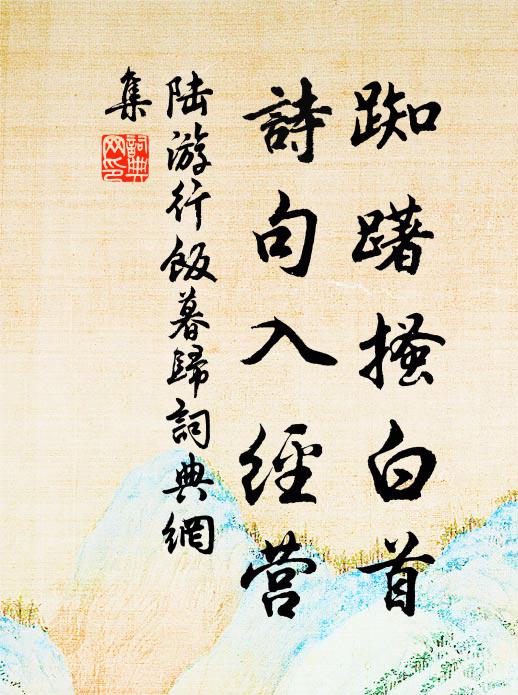 踟躇搔白首
詩句入經营
陆游行飯暮歸詞典網
集
詞典
网印